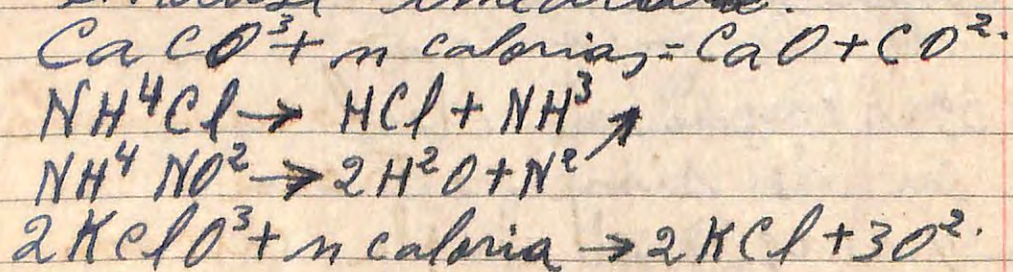 CaCO³ + n calorias = CaO + CO².
NH⁴Cl → HCl + NH³
NH⁴ NO² → 2H²O + N² ↗
2KClO³ + n caloria → 2KCl + 3O².